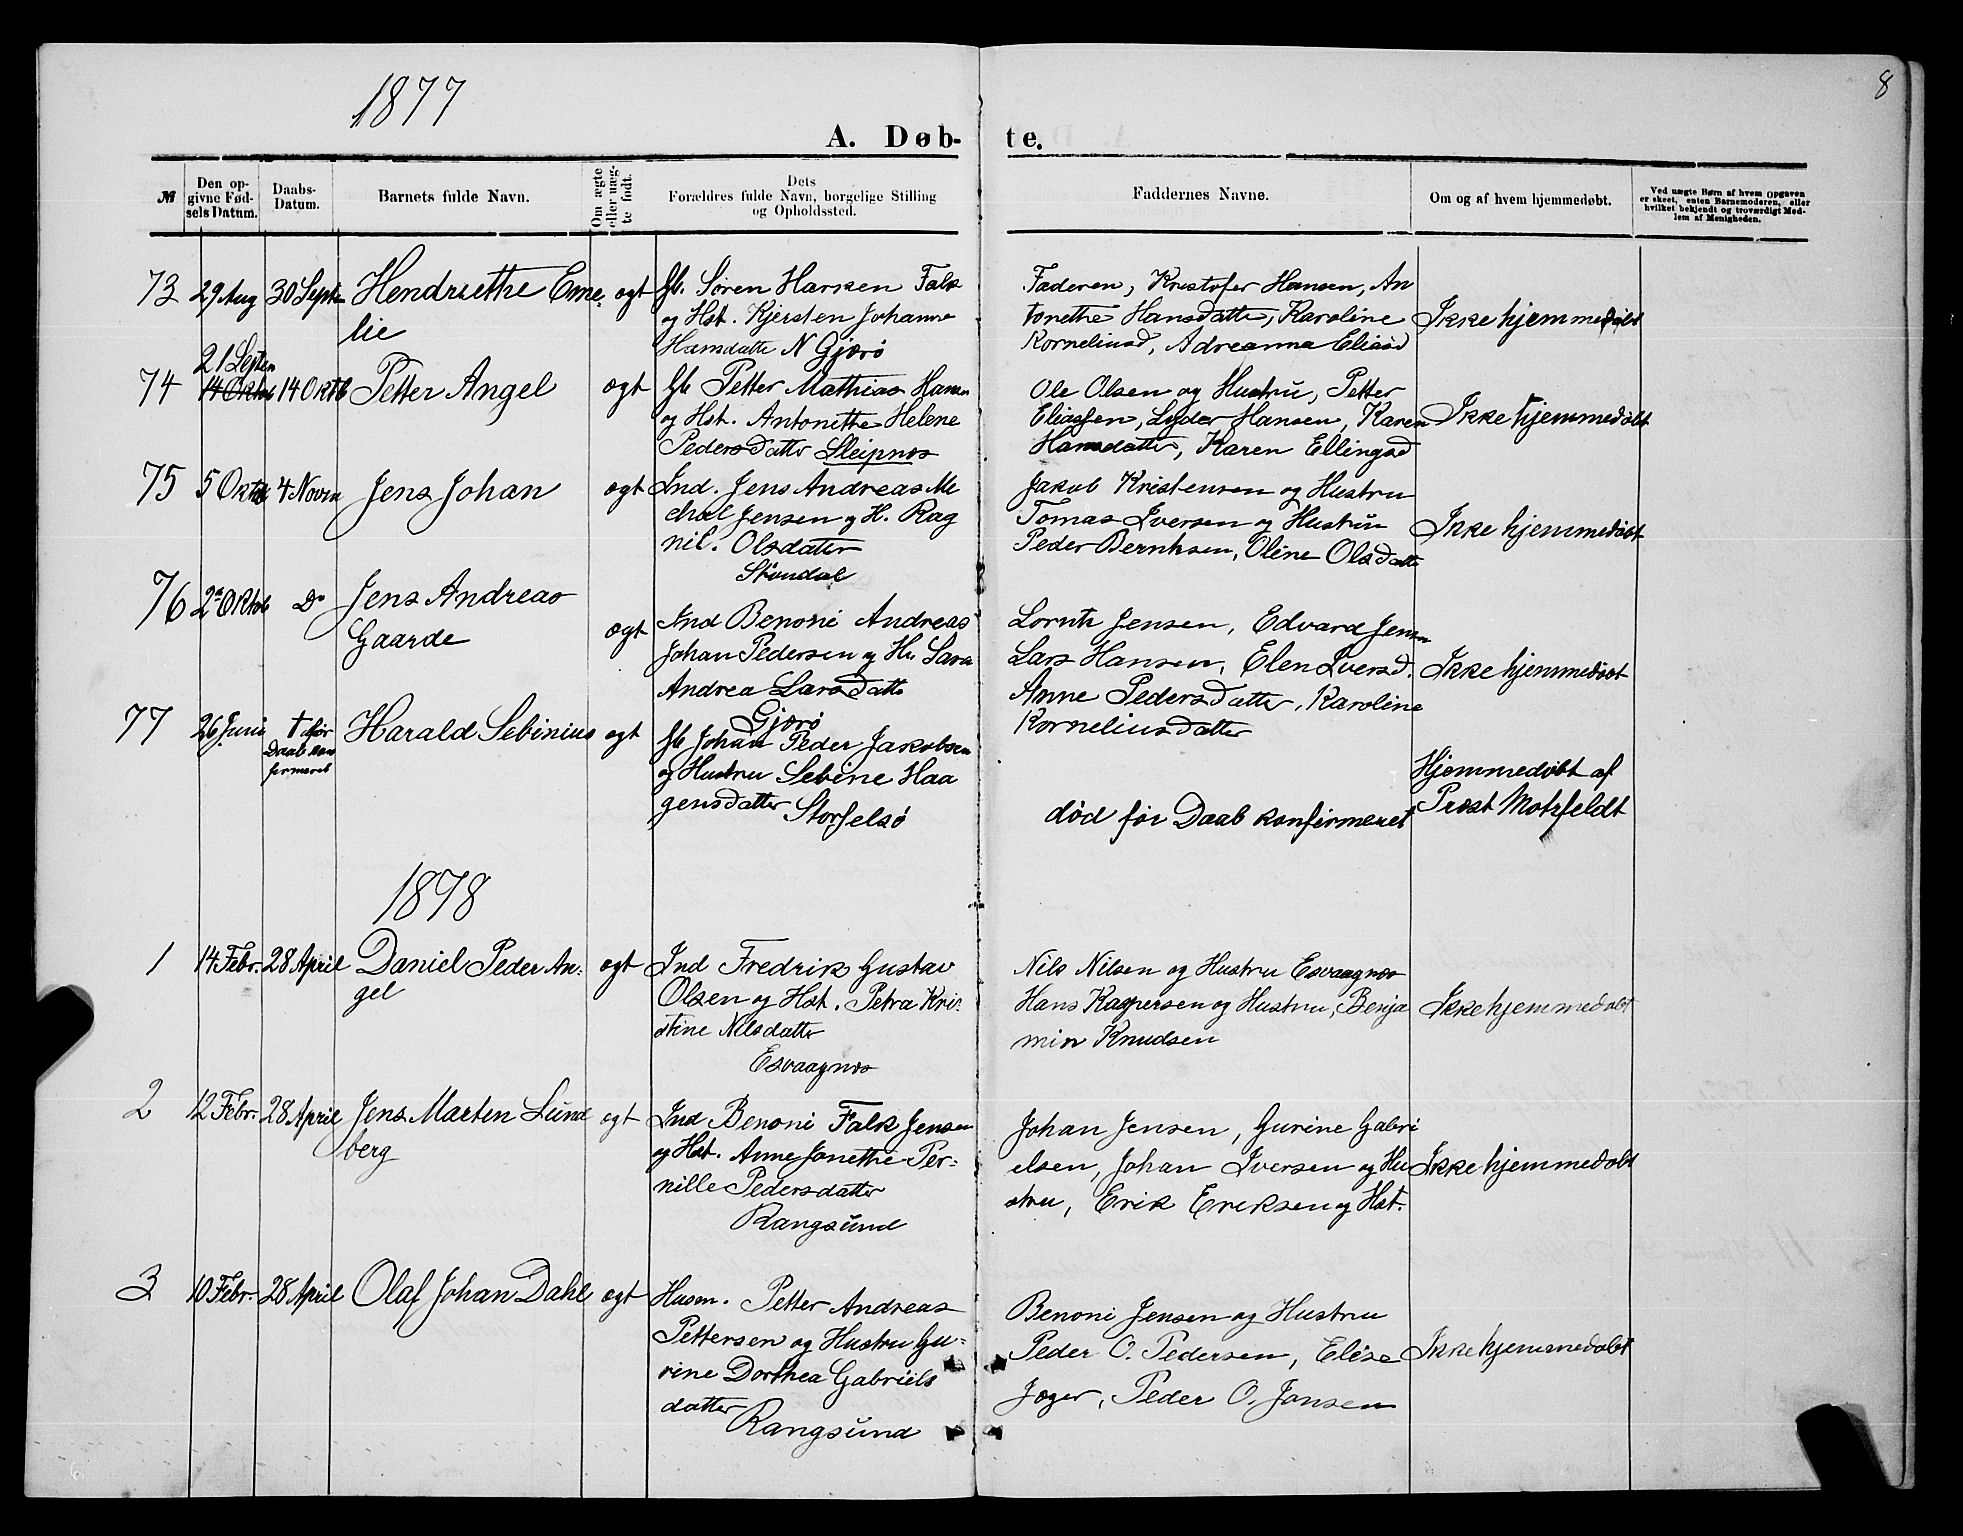 8
1877
A. Døb- te.
№ Den opgivne Fødsels Datum. Daabs-Datum. Barnets fulde Navn. Om ægte eller uægte født. Dets Forældres fulde Navn, borgelige Stilling og Opholdssted. Faddernes Navne. Om og af hvem hjemmedøbt. Ved uægte Børn af hvem Opgaven er skeet, enten Barnemoderen, eller hvilket bekjendt og troværdigt Medlem af Menigheden.
73 29 Aug 30 Septm Hendriethe Eme ægt Gb. Sören Hansen Falk
lie og Hst. Kjersten Johanne
Hansdatte N Gjærø
Faderen, Kristofer Hansen, An
tonette Hansdatte, Karoline
Korneliusd, Adreanna Eliasd
Ikke hjemmedøbt
21 Septem
74 14 Oktob 14 Oktb Petter Angel ægt Gb Petter Mathias Hansen
og Hst. Antonette Helene
Pedersdatte Sleipnæs
Ole Olsen og Hustru, Petter
Eliassen, Lyder Hansen, Karen
Hansdatte, Karen Ellingsd
Ikke hjemmedøbt
75 5 Oktob 4 Novm Jens Johan ægt Ind. Jens Andreas Me
chal Jensen og H. Rag
nil. Olsdatter
Störndal
Jakob Kristensen og Hustru
Tomas Iversen og Hustru
Peder Bernhsen, Oline Olsdatte
Ikke hjemmedøbt
76 2 Oktob Do Jens Andreas
Gaarde ægt Ind Benoni Andreas
Johan Pedersen og Hu Sara
Andrea Larsdatte
Gjærø
Lornts Jensen, Edvard Jensen
Lars Hansen, Elen Iversd.
Anne Pedersdatter, Karoline
Korneliusdatter
Ikke hjemmedøbt
77 26 Juni † før Daab konfirmeret Harald Sebinius ægt Gb Johan Peder Jakobsen
og Hustru Sebine Haa
gensdatter Storselsø
død før Daab konfirmeret
Hjemmedøbt af
Præst Motzfeldt
1878
1 14 Febr. 28 April Daniel Peder An-
gel ægt Ind Fredrik Gustav
Olsen og Hst. Petra Kri-
stine Nilsdatter
Esvaagnæs
Nils Nilsen og Hustru Esvaagnæs
Hans Kaspersen og Hustru, Benja
min Knudsen
Ikke hjemmedøbt
2 12 Febr. 28 April Jens Marten Lund
berg ægt Ind Benoni Falk Jensen
og Hst. Anne Jonethe Per-
nille Pedersdatter
Rangsund
Johan Jensen, Gurine Gabri
elsen, Johan Iversen og Hu
stru, Erik Eriksen og Hst.
Ikke hjemmedøbt
3 10 Febr. 28 April Olaf Johan Dahl ægt Husm. Petter Andreas
Pettersen og Hustru Gu-
rine Dorthea Gabriels
datter
Rangsund
Benoni Jensen og Hustru
Peder O. Pedersen, Elise
Jæger, Peder O. Jansen
Ikke hjemmedøbt